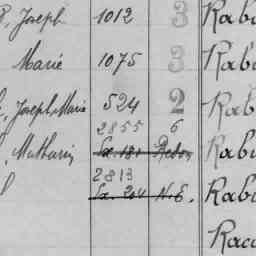 Joseph 1012 3 Rab
Marie 1075 3 Rab
Joseph Marie 524 2 Rab
2855 6
Mathurin Ex. 181 Redon Rab
2813
Ex. 204 N.E. Rab
Rac